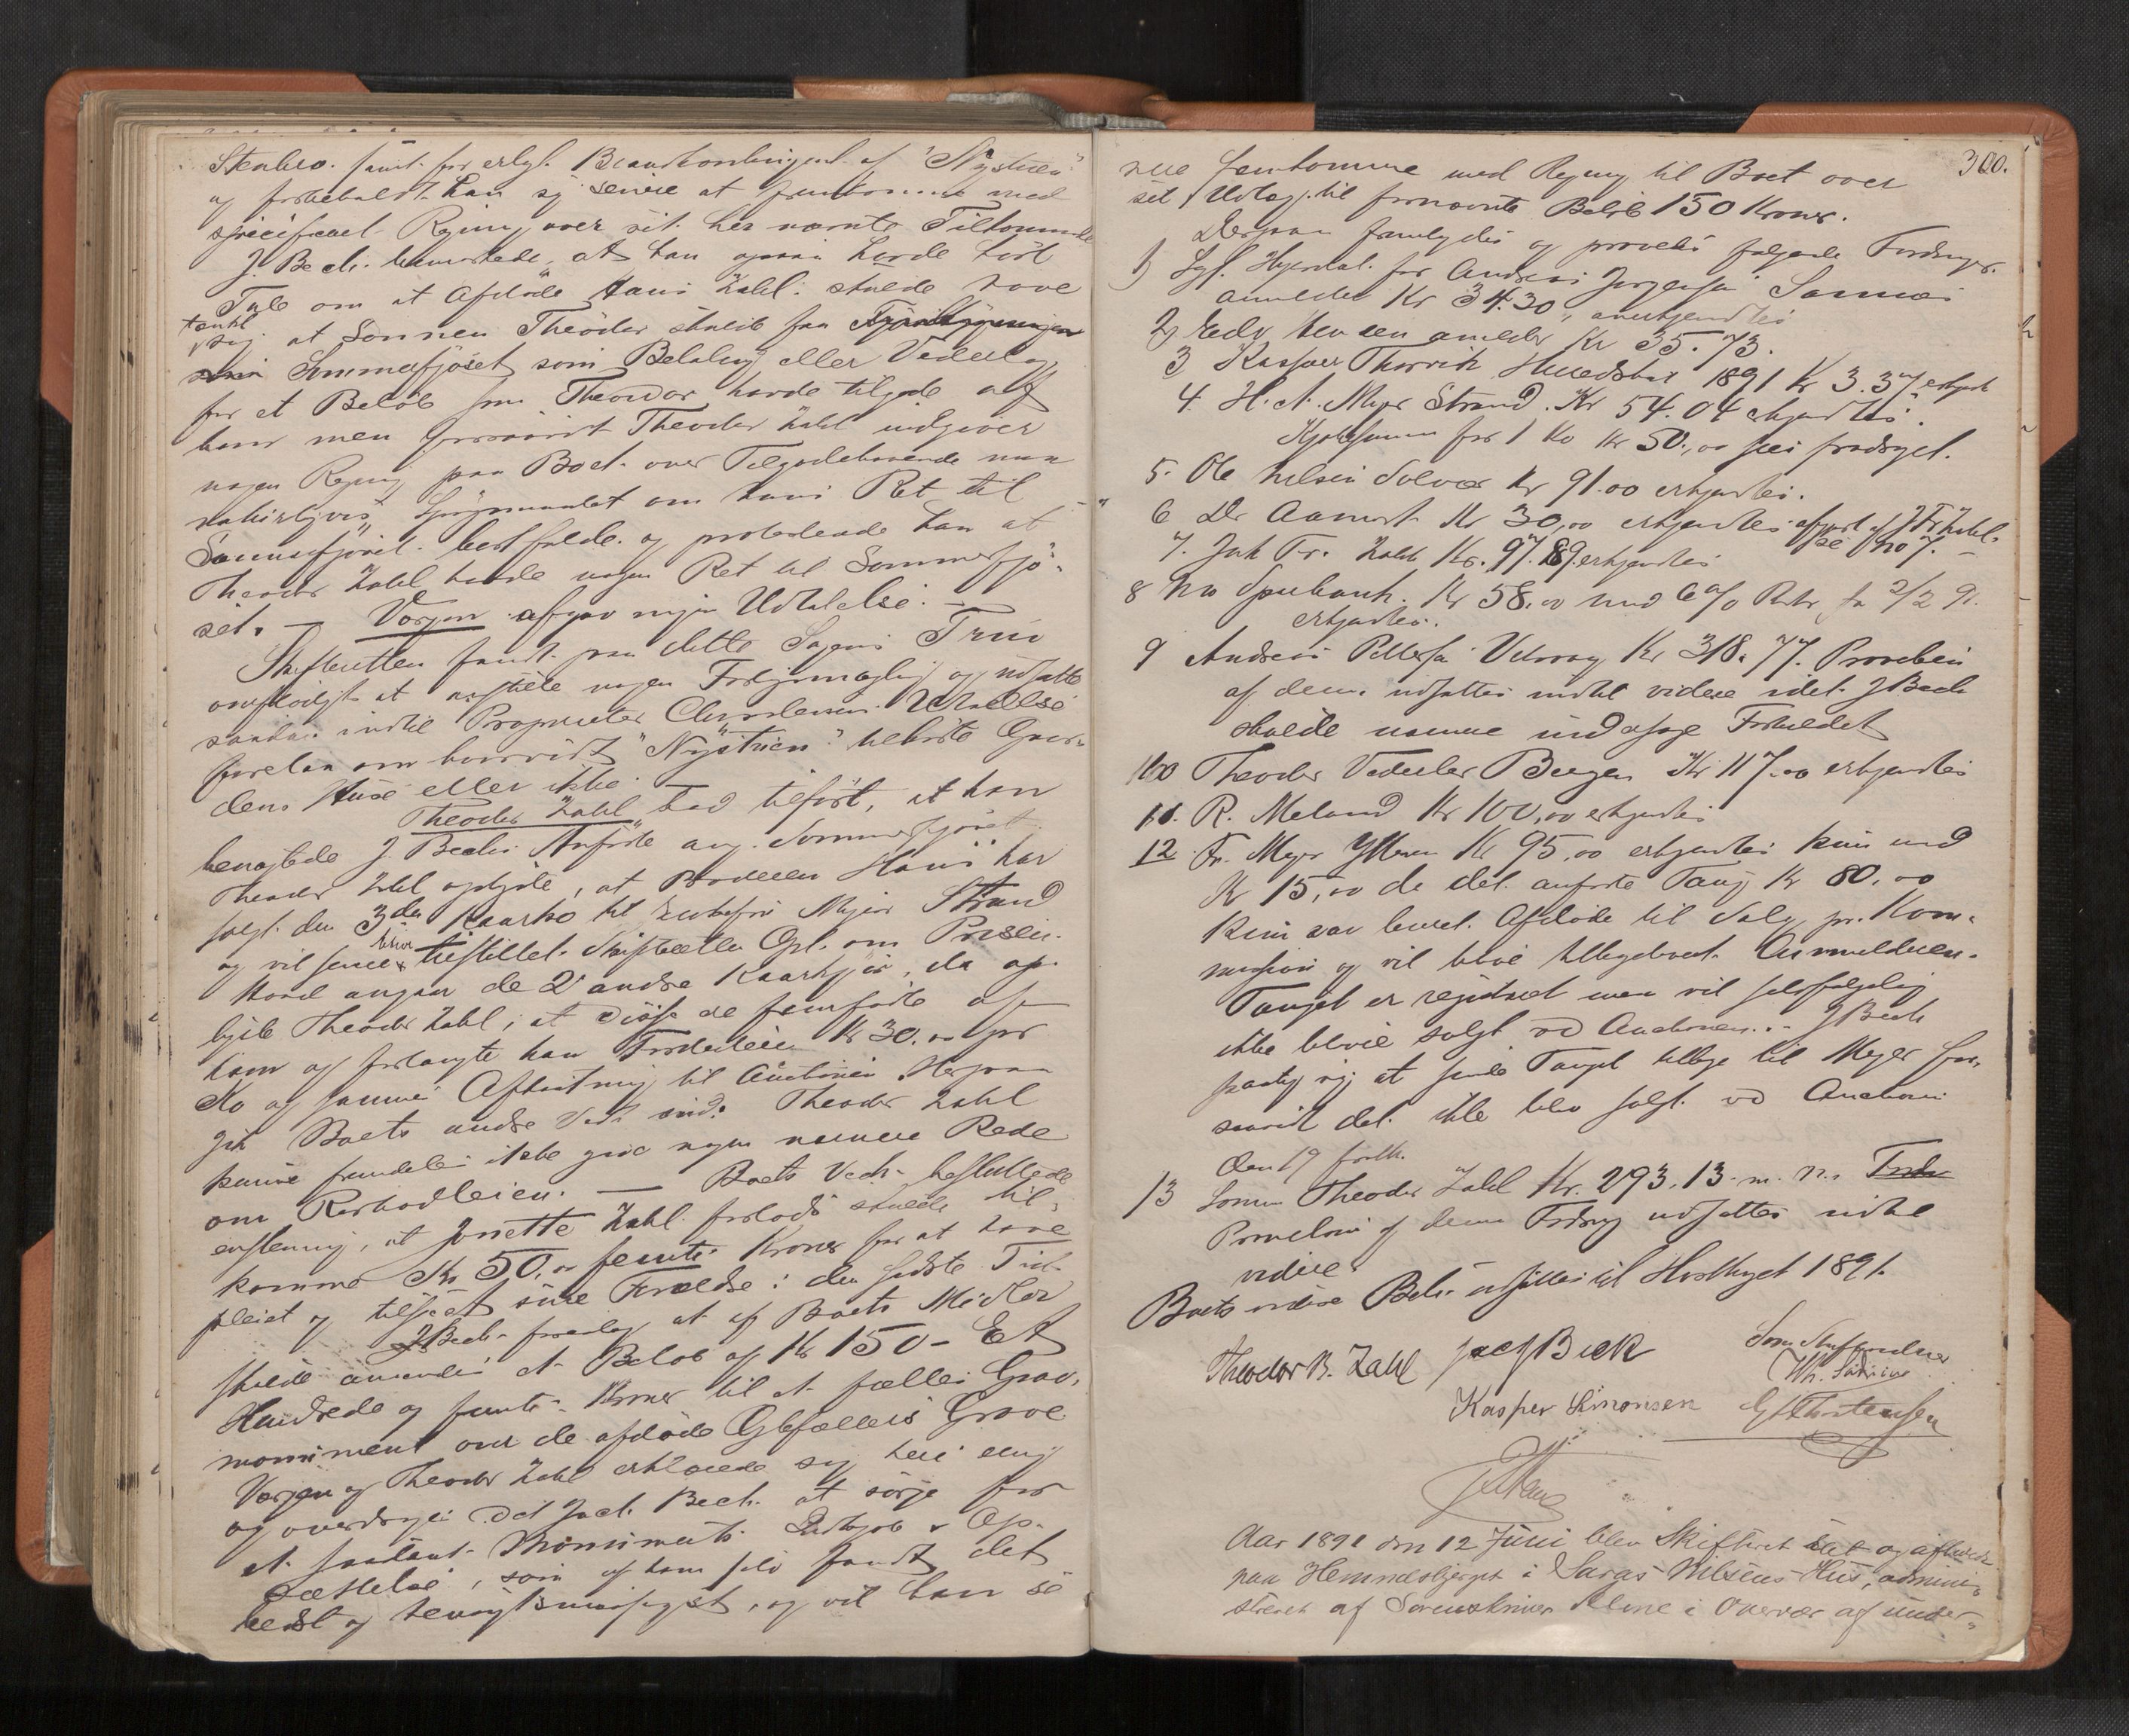 Stenbro. samt for erlagt Brandkontingent af "Nystuen"
og forbeholdt han sig senere at fremkomme med
specificeret Regning over sit her nævnte Tilkommende
J. Bech bemærkede, at han ogsaa havde hört
Tale om at Afdöde Hans Zahl skulde have
tænkt sig at Sönnen Theodor skulde faa
Sommerfjöset som Betaling eller Vederlag
for et Belöb som Theodor havde tilgode af
ham men forsaavidt Theodor Zahl indgiver
nogen Regning paa Boet over Tilgodehavende maa
naturligvis Spörgsmaalet om hans Ret til
Sommerfjöset bortfalde og protesterede han at
Theodor Zahl havde nogen Ret til Sommerfjö-
set. — Værgen afgav ingen Udtalelse. —
Skifteretten fandt paa dette Sagens Trin
at nogen og udsatte
saadan indtil Proprietær Udtalelse
forelaa om hvorvidt "Nystuen" tilhörte Gaar-
dens Huse eller ikke.
Theodor Zahl bad tilfört, at han
benægtede J. Bechs Anförte ang. Sommerfjöset.
Theodor Zahl oplyste, at Broderen Hans har
solgt den 3die Kaarko til Meyer Strand
og vil senere blive tilstillet Skifteretten Opl. om Prisen.
Hvad angaar de 2 andre Kaarkjör, da op-
lyste Theodor Zahl, at disse ere fremfödte af
ham og forlangte han Foderleien Kr 30.00 pr
Ko og samme Afbenyttelse til Auktionen. Herpaa
gik Boets andre Ved. ind. Theodor Zahl
kunne fremdeles ikke give nogen nærmere Rede
om Rorbodleien. — Boets Vedk. besluttede
enstemmig, at Jonette Zahl forlods skulde til-
komme Kr 50.00 femti Kroner for at have
pleiet og tilseet sine Forældre i den sidste Tid.
J. Bech foreslog at af Boets Midler
skulde anvendes et Belöb af Kr 150 - Et
Hundrede og femti - Kroner til et fælles Grav-
monument over de afdöde Ægtefællers Grave
Værgen og Theodor Zahl erklærede sig heri enig
og overdroges det Jach. Bech. at sörge for
et saadant Monuments Indkjöb & Op-
sættelse, som af ham selv fandt det
bedst og hensigtsmæssigst, og vil han se-
300.
nere fremkomme med Regning til Boet over
sit Udlæg til fornævnte Belöb 150 Kroner.
Derpaa fremlagdes og prövedes fölgende Fordringer.
1) Sgf. for Andreas Jörgensen
anmeldt Kr 34.30, anerkjendtes
2) Edv. Hensen anmeldt Kr 35.73.
3 Kasper Thorvik 1891 Kr 3.37 erkjendt
4. H. A. Meyer Strand. Kr 54.04 erkjendtes.
Kjöbesummen for 1 Ko Kr 50,00 sees fradraget.
5. Ole Nilsen Solvær Kr 91.00 erkjendtes.
6 Dr Kr 30,00 erkjendtes afgjort af J Fr Zahl.
se No 7. —
7. Jak Fr. Zahl Kr. 97.89 erkjendtes
8 Sparebank. Kr 58.00 med 6 % Rente fra 2/2 91.
erkjendtes.
9 Andreas Pettersen Kr 318.77. Prövelsen
af denne udsattes indtil videre idet J Bech
skulde nærmere undersöge Forholdet
10 Theodor Vedeler Bergen Kr 117.00 erkjendtes
11. R. Meland Kr 100,00 erkjendtes
12. Fr. Meyer Kr 95,00 erkjendtes kun med
Kr 15,00 da det anförte Taug Kr 80,00
kun var leveret Afdöde til Salg pr. Kom-
mission og vil blive tilbageleveret Anmelderen.
Tauget er registreret men vil selvfölgelig
ikke blive solgt ved Auctionen. J Bech
paatog sig at sende Tauget tilbage til Meyer for-
saavidt det ikke blev solgt ved Auction
den 19
13 Sönnen Theodor Zahl Kr. 293.13. m. v.
Prövelsen af denne Fordring udsattes indtil
videre.
Boets videre Beh. udsættes til Hosttinget 1891.
Theodor B. Zahl Jach Bech
Som Skiftevidner
Kasper Simonsen
Aar 1891 den 12 Juni blev Skifteret sat og afholdt
paa Hemnesbjerget i Saras Nilsens Hus, admini-
streret af Sorenskriver i Overvær af under-